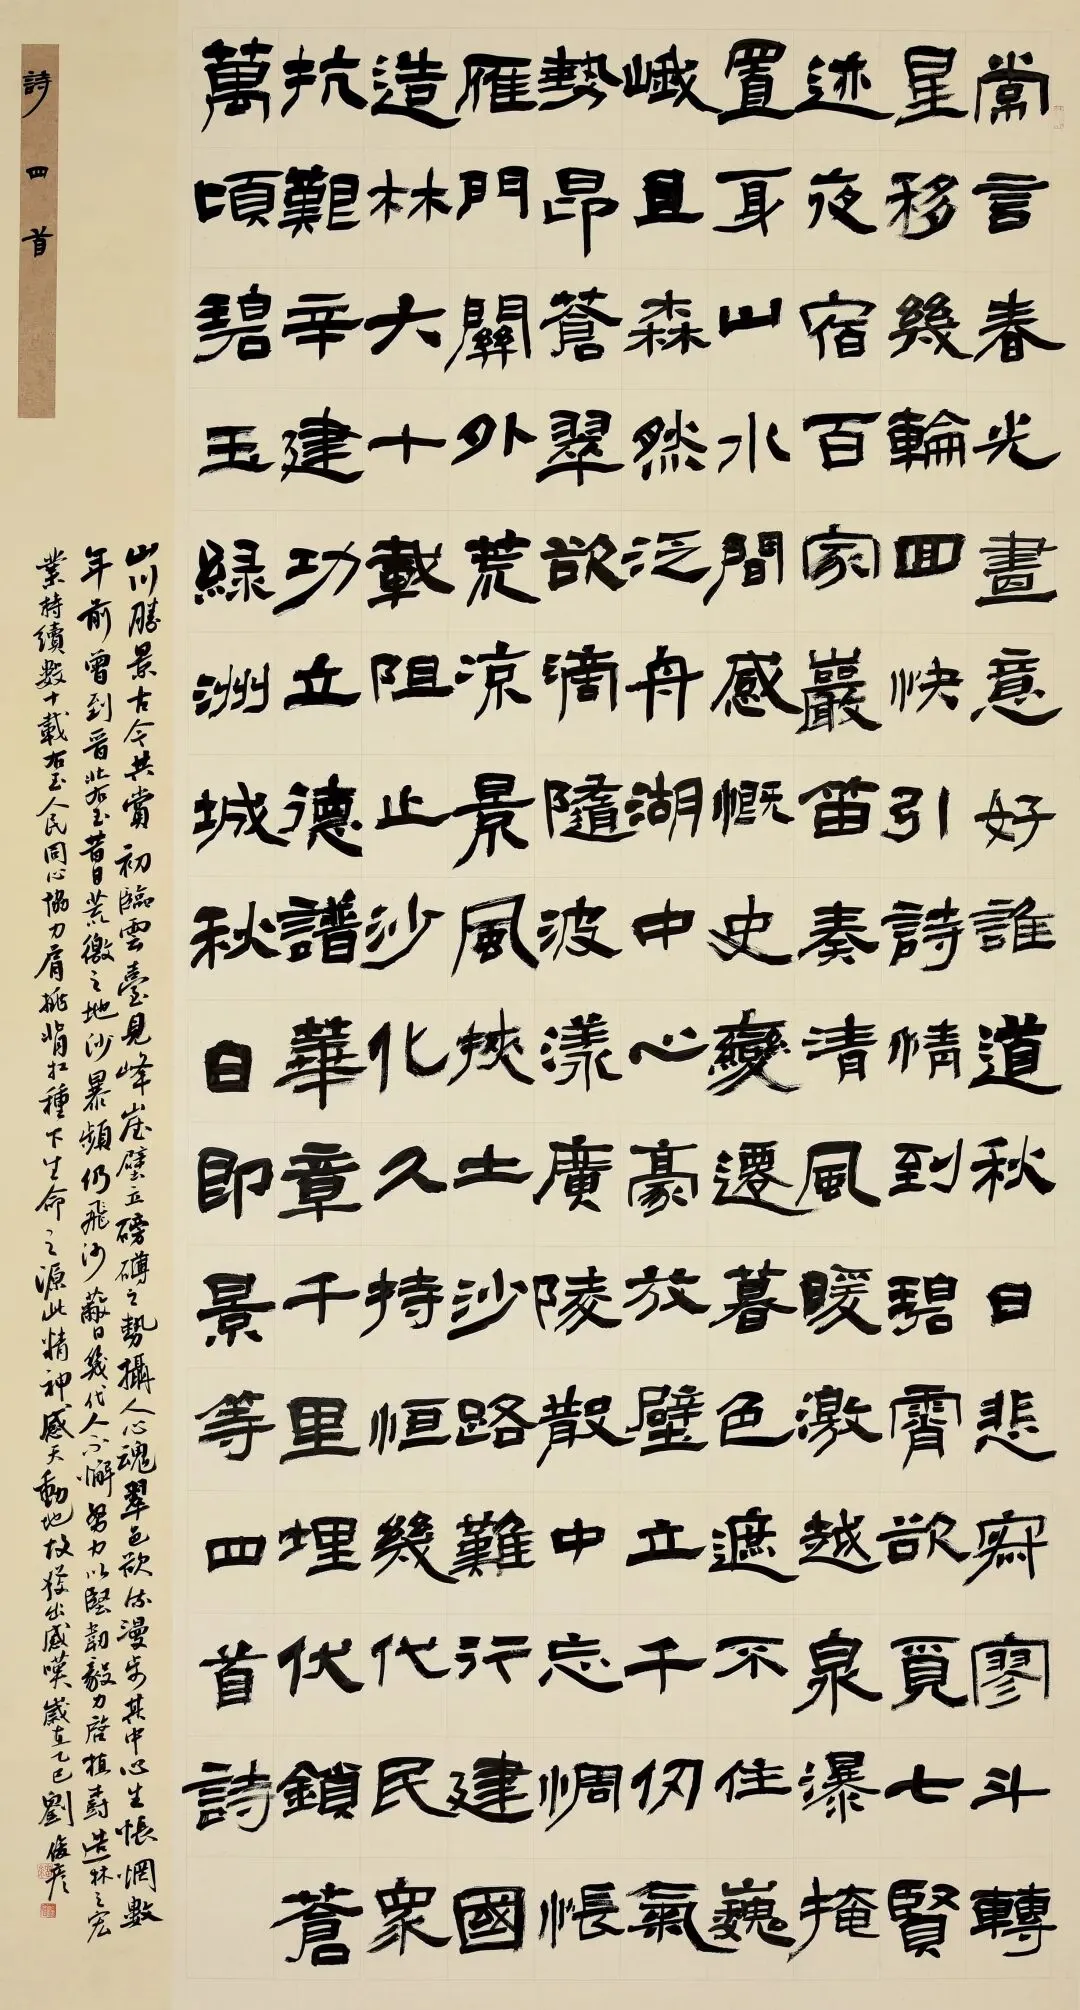 嘗言春光畫意好誰道秋日悲寂寥斗轉
星移幾輪回快引詩情到碧霄欲覓七賢
迹夜宿百家巖笛奏清風暖激越泉瀑掩
置身山水間感慨史變遷暮色遮不住巍
峨且森然泛舟湖中心豪放壁立千仞氣
勢昂蒼翠欲滴隨波漾廣陵散中忘惆悵
雁門關外荒涼景風挾土沙路難行建國
造林六十載阻止沙化久持恒幾代民衆
抗艱辛建功立德譜華章千里埋伏鎖蒼
萬頃碧玉綠洲城秋日即景等四首詩
詩四首
山川勝景古今共賞初臨雲臺見峰崖壁立磅礴之勢攝人心魂翠色欲流漫步其中心生悵惘數
年前曾到晋北右玉昔日荒徼之地沙暴頻仍飛沙蔽日幾代人不懈努力以堅韌毅力啓植樹造林之宏
業持續數十載右玉人民同心協力肩挑背扛種下生命之源此精神感天動地故發出感嘆歲在乙巳劉俊彦